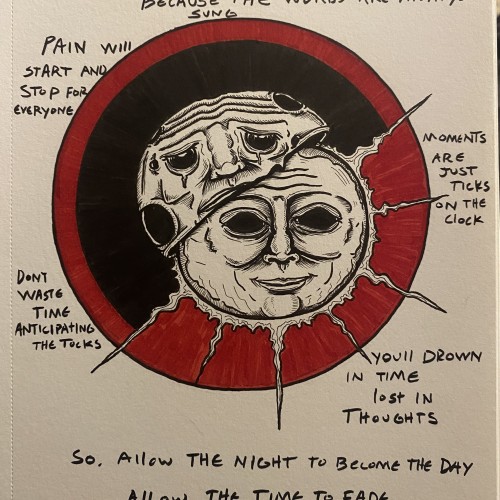 BECAUSE THE WORDS ARE ALWAYS
SUNG
PAIN WILL
START AND
STOP FOR
EVERYONE
MOMENTS
ARE
JUST
TICKS
ON THE
CLOCK
DONT
WASTE
TIME
ANTICIPATING
THE TOCKS
YOU'll DROWN
IN TIME
lost IN
THOUGHTS
SO, Allow THE NIGHT TO BECOME THE DAY
Allow THE TIME TO FADE